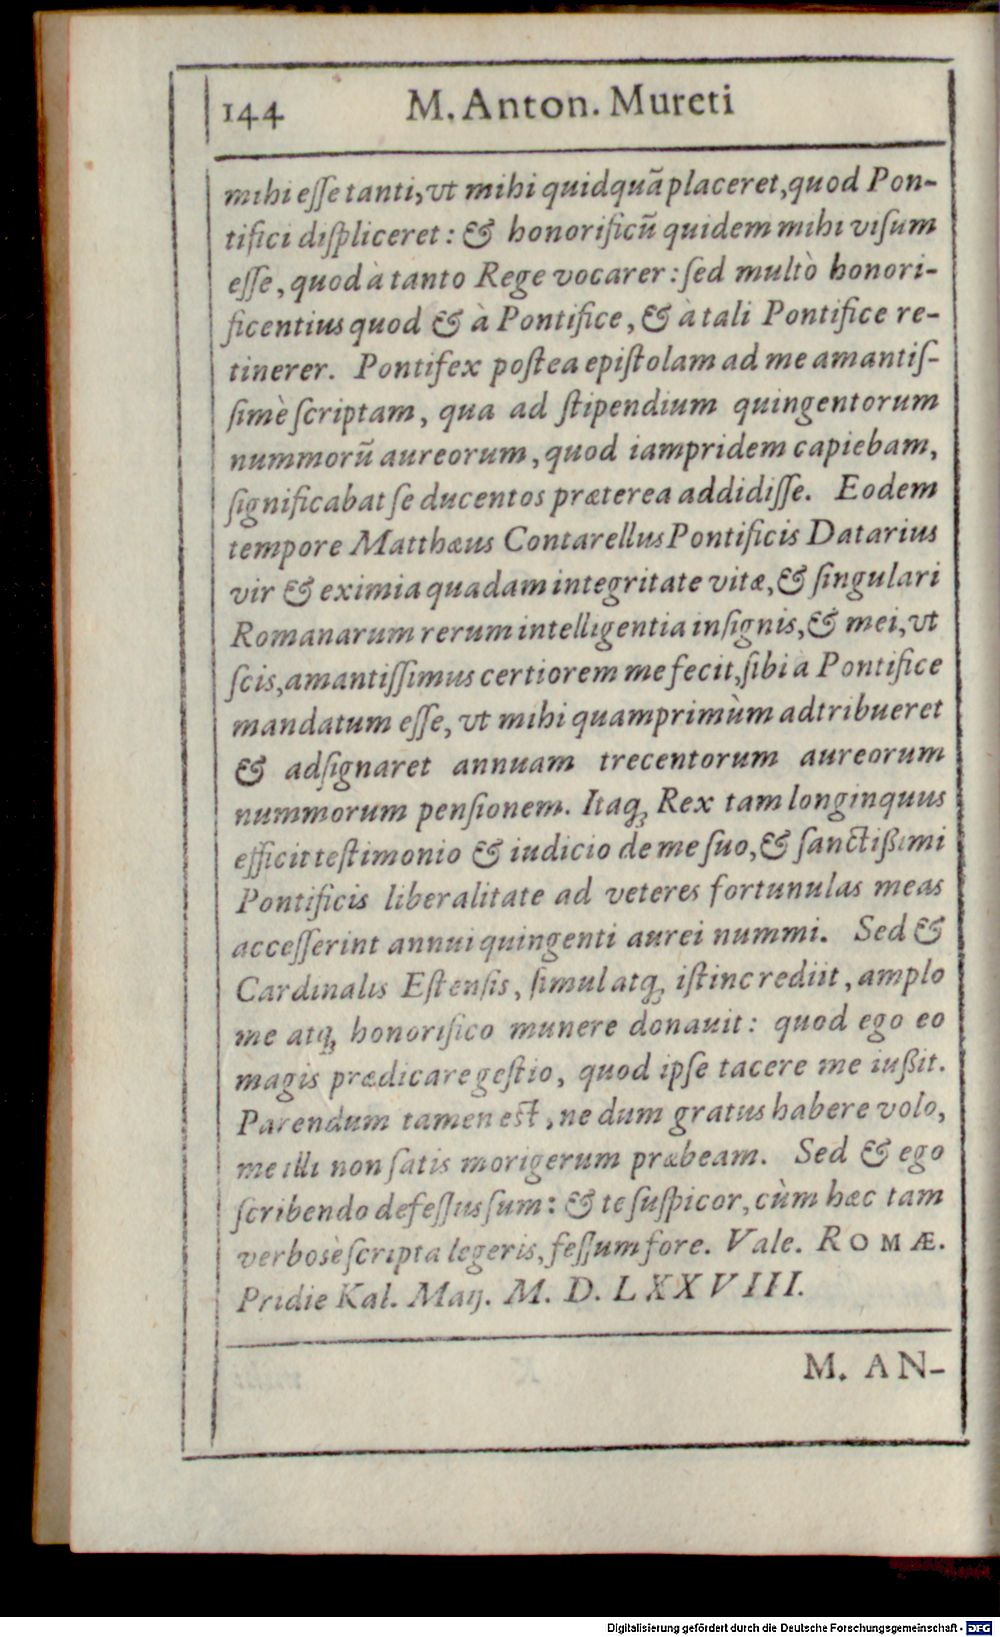 144 M. Anton. Mureti
mihi eſſe tanti, vt mihi quidquã placeret, quod Pon-
tifici diſpliceret: & honorificũ quidem mihi viſum
eſſe, quod à tanto Rege vocarer: ſed multò honori-
ficentius quod & à Pontifice, & à tali Pontifice re-
tinerer. Pontifex poſtea epiſtolam ad me amantiſ-
ſimè ſcriptam, qua ad ſtipendium quingentorum
nummorũ aureorum, quod iampridem capiebam,
ſignificabat ſe ducentos præterea addidiſſe. Eodem
tempore Matthæus Contarellus Pontificis Datarius
vir & eximia quadam integritate vitæ, & ſingulari
Romanarum rerum intelligentia inſignis, & mei, vt
ſcis, amantiſſimus certiorem me fecit, ſibi à Pontifice
mandatum eſſe, vt mihi quamprimùm adtribueret
& adſignaret annuam trecentorum aureorum
nummorum penſionem. Itaq; Rex tam longinquus
efficit teſtimonio & iudicio de me ſuo, & ſanctißimi
Pontificis liberalitate ad veteres fortunulas meas
acceſſerint annui quingenti aurei nummi. Sed &
Cardinalis Eſtenſis, ſimul atq; iſtinc rediit, amplo
me atq; honorifico munere donauit: quod ego eo
magis prædicare geſtio, quod ipſe tacere me iußit.
Parendum tamen eſt, ne dum gratus habere volo,
me illi non ſatis morigerum præbeam. Sed & ego
ſcribendo defeſſus ſum: & te ſuſpicor, cùm hæc tam
verbosè ſcripta legeris, feſſum fore. Vale. ROMÆ.
Pridie Kal. Maij. M. D. LXXVIII.
M. AN-
Digitalisierung gefördert durch die Deutsche Forschungsgemeinschaft - DFG